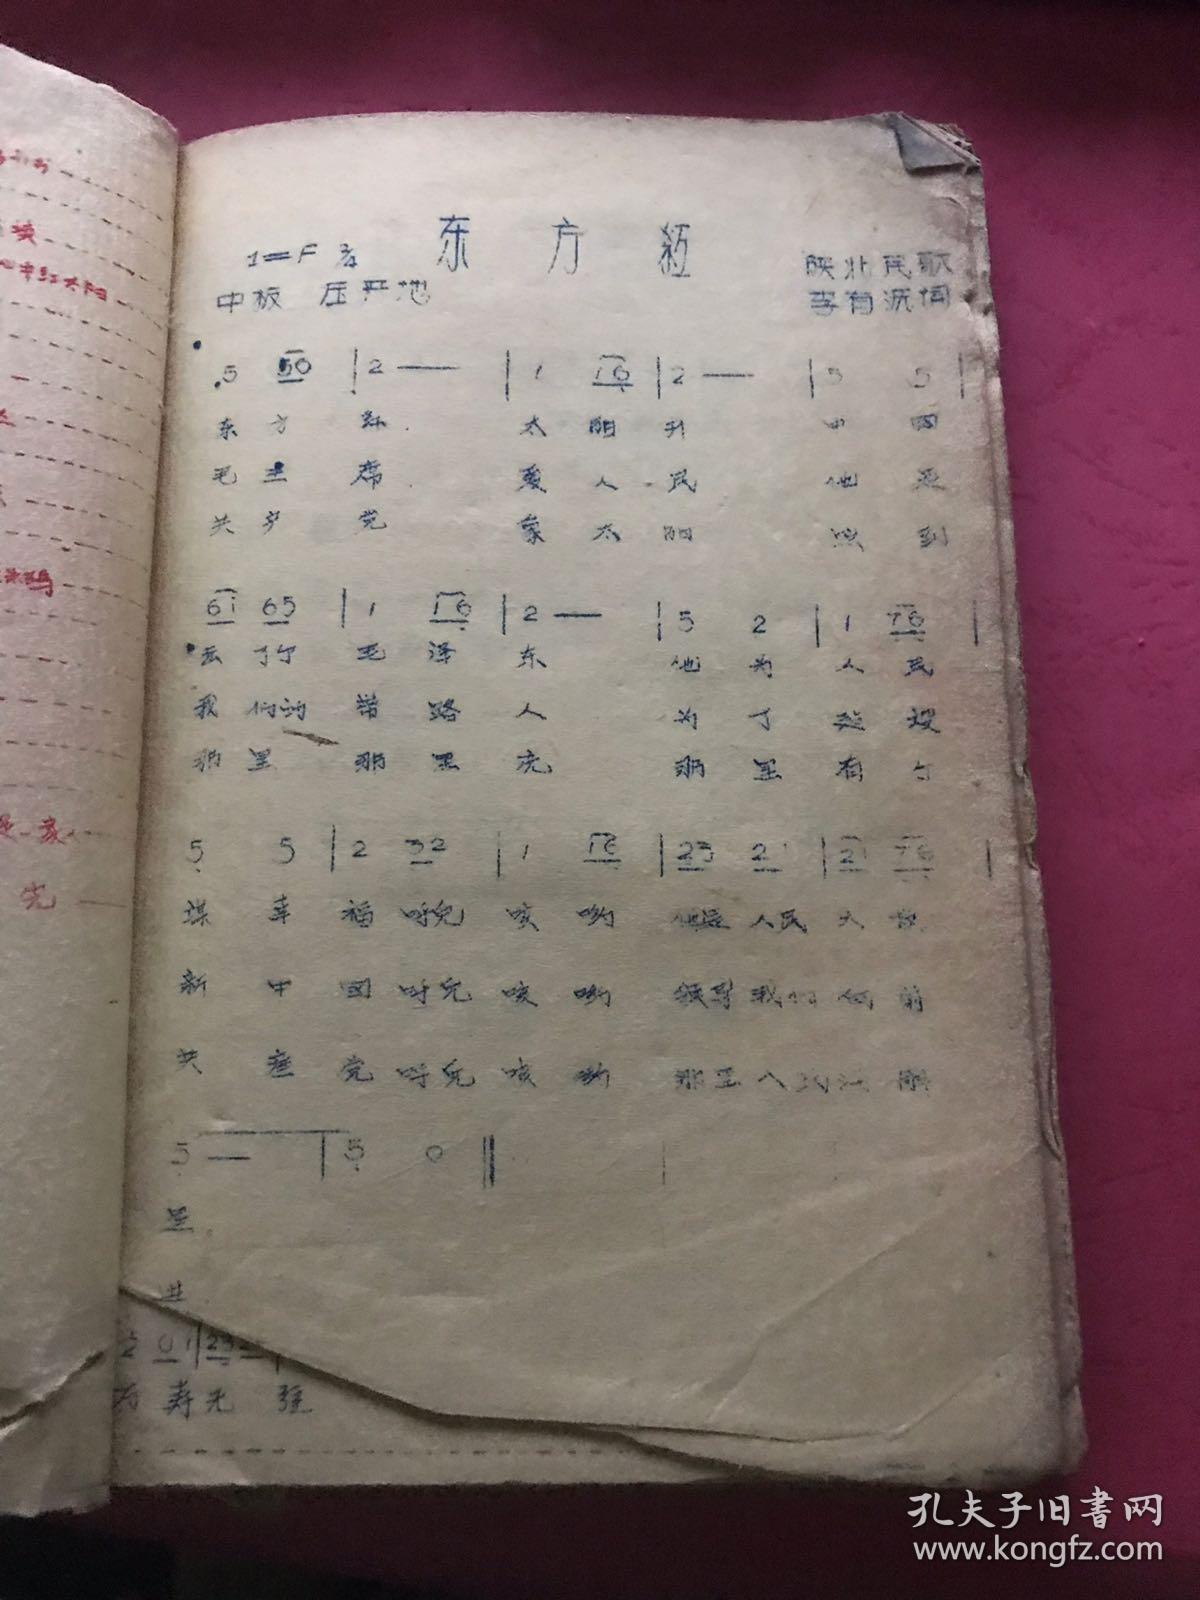 东方红
1=F 2/4
陕北民歌
中板 压严地
李有源词
5 56 | 2 — | 1 16 | 2 — | 5 5 |
东 方 红 太 阳 升 中 国
毛 主 席 爱 人 民 他 是
共 产 党 象 太 阳 照 到
61 65 | 1 16 | 2 — | 5 2 | 1 76 |
出了个 毛 泽 东 他 为 人 民
我 们的 带 路 人 为 了 建 设
那 里 那 里 亮 那 里 有 了
5 5 | 2 32 | 1 16 | 23 21 | 21 76 |
谋 幸 福 呼儿 咳 哟 他是 人民 大 救
新 中 国 呼儿 咳 哟 领导 我们 向 前
共 产 党 呼儿 咳 哟 那里 人民 得 解
5 — | 5 0 ‖
星
进
2 01 | 23 2
寿无 疆
孔夫子旧书网
www.kongfz.com